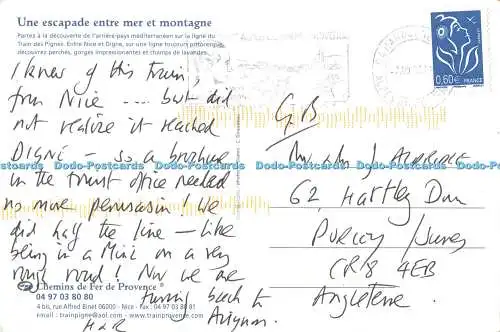 Une escapade entre mer et montagne
Partez à la découverte de l'arrière-pays méditerranéen sur la ligne du
Train des Pignes. Entre Nice et Digne, sur une ligne toujours pittoresque,
découvrez perchés, gorges impressionnantes et
I knew of this train,
from Nice ... but did
not realize it reached
DIGNE - so a brochure
in the tourist office needed
no more persuasion! We
did half the line - like
being in a Mini on a very
rough road! Now we are
turning back to
Avignon.
H & R
Chemins de Fer de Provence
04 97 03 80 80
4 bis, rue Alfred Binet 06000 - Nice - Fax : 04 97 03 80 81
email : trainpigne@aol.com - www.trainprovence.com
0,60€ FRANCE
G.B
J
62, Hartley Down
PURLEY / Surrey
CR8 4EB
Angleterre.
Dodo-Postcards Dodo-Postcards Dodo-Postcards Dodo-Postcards Dodo-Postcards